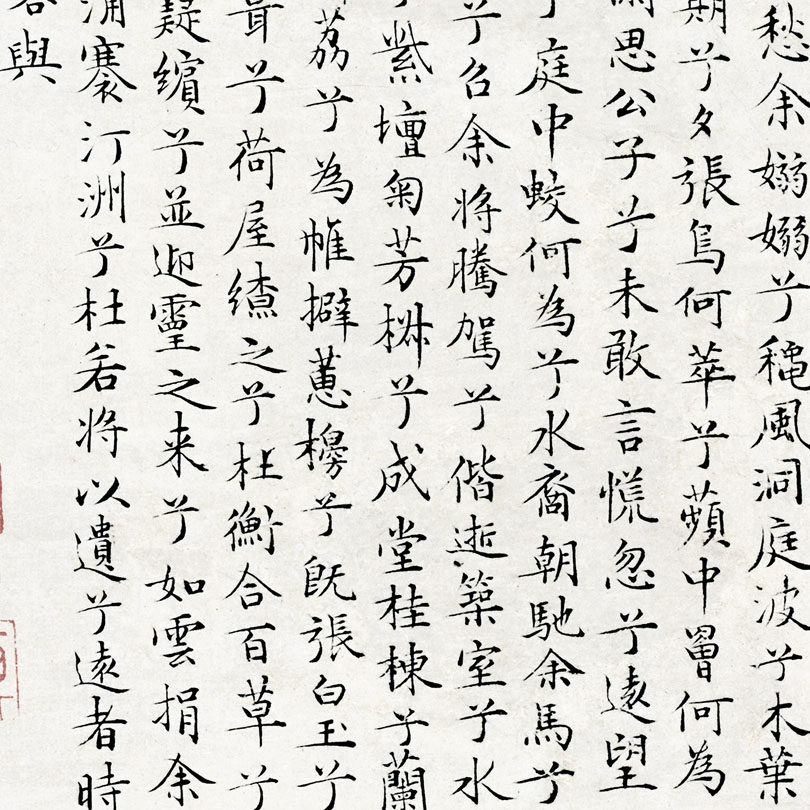 愁余嫋嫋兮穐風洞庭波兮木葉
期兮夕張鳥何萃兮蘋中罾何為
思公子兮未敢言慌忽兮遠望
庭中蛟何為兮水裔朝馳余馬兮
兮召余将騰駕兮偕逝築室兮水
紫壇匊芳椒兮成堂桂棟兮蘭
荔兮為帷擗蕙櫋兮既張白玉兮
葺兮荷屋繚之兮杜衡合百草兮
疑繽兮並迎靈之来兮如雲捐余
浦搴汀洲兮杜若将以遺兮遠者時
容與